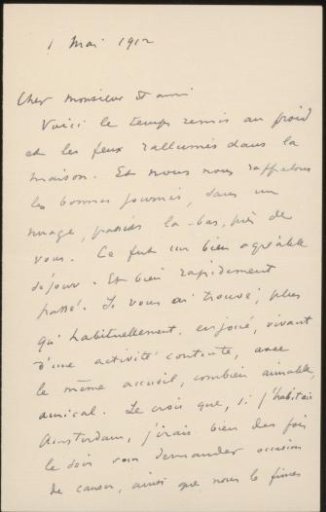 1 Mai 1912
Cher Monsieur et ami
Voici le temps remis au froid
et les feux rallumés dans la
maison. Et nous nous rappelons
les bonnes journées, dans un
nuage, passées là-bas, près de
vous. Ce fut un bien agréable
séjour. Et bien rapidement
passé. Je vous ai trouvé, plus
qu'habituellement, enjoué, vivant
d'une activité contente, avec
le même accueil, combien aimable,
amical. Je crois que, si j'habitais
Amsterdam, j'irais bien des fois
le soir vous demander occasion
de causer, ainsi que nous le fîmes